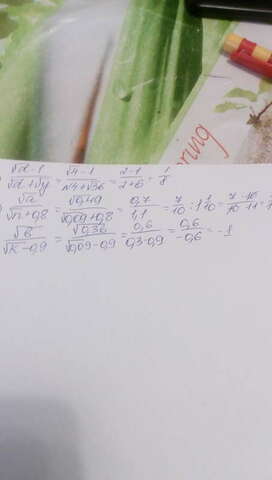 ring
(√x-1)/(√x+√y) = (√4-1)/(√4+√36) = (2-1)/(2+6) = 1/8
√a/(√n+0,8) = √0,49/(√0,09+0,8) = 0,7/1,1 = 7/10 : 1 1/10 = 7·10/10·11 =
√b/(√k-0,9) = √0,36/(√0,09-0,9) = 0,6/(0,3-0,9) = 0,6/-0,6 = -1